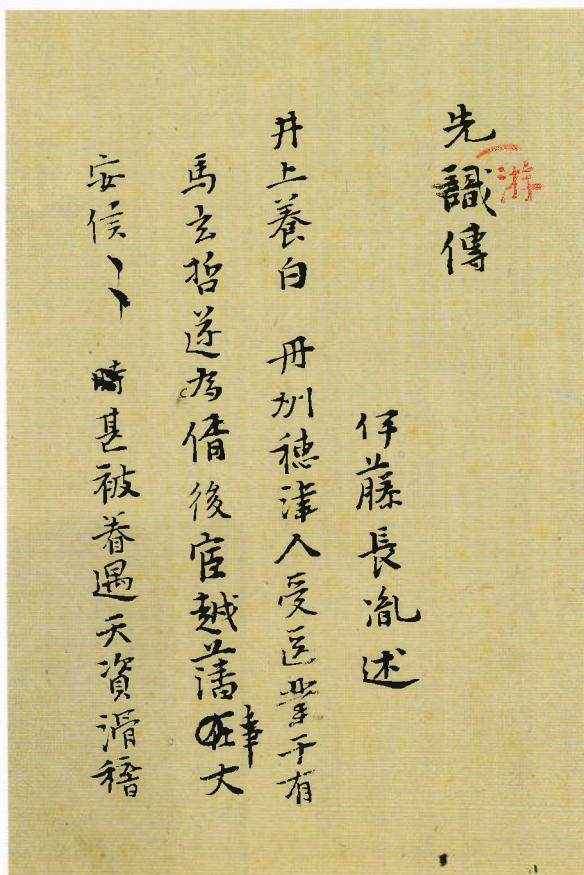 先識傳
游
伊藤長胤述
井上養白 丹州穂津人受医業于有
馬玄哲遂為偦後宦越藩事大
安侯〻 時甚被眷遇天資滑稽